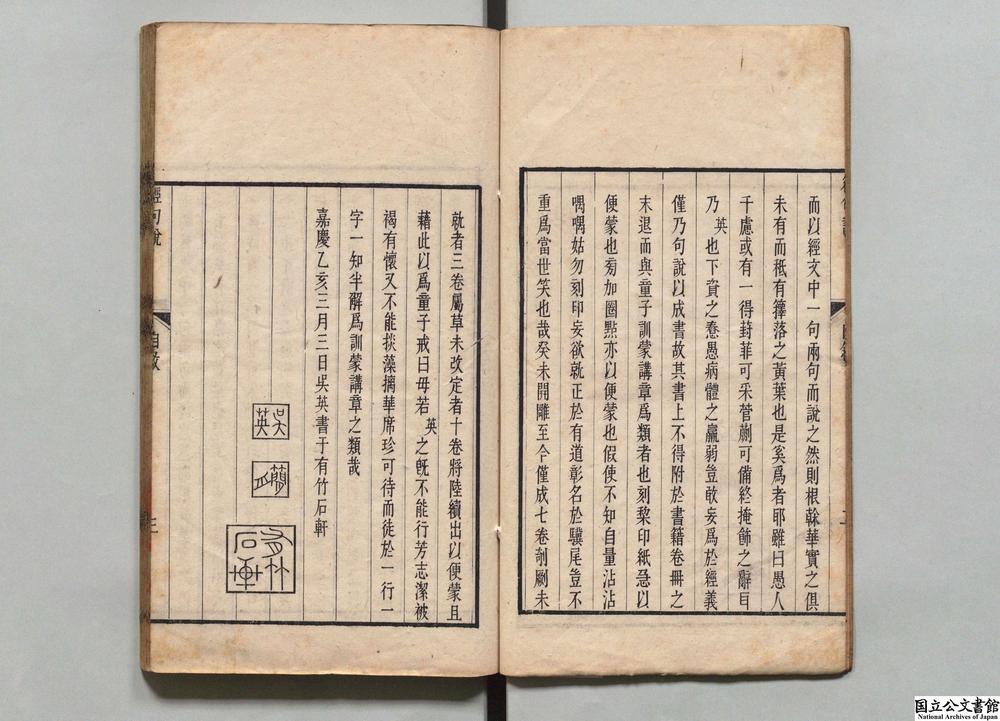 而以經文中一句兩句而說之然則根榦華實之俱
未有而秖有籜落之黃葉也是奚爲者耶雖曰愚人
千慮或有一得葑菲可采菅蒯可備終掩飾之辭耳
乃英也下資之惷愚病體之羸弱豈敢妄爲於經義
僅乃句說以成書故其書上不得附於書籍卷冊之
末退而與童子訓蒙講章爲類者也刻棃印紙急以
便蒙也豿加圈點亦以便蒙也假使不知自量沾沾
喁喁姑勿刻印妄欲就正於有道彰名於驥尾豈不
重爲當世笑也哉癸未開雕至今僅成七卷剞劂未
就者三卷屬草未改定者十卷將陸續出以便蒙且
藉此以爲童子戒曰毋若英之旣不能行芳志潔被
褐有懷又不能掞藻摛華席珍可待而徒於一行一
字一知半解爲訓蒙講章之類哉
嘉慶乙亥三月三日吳英書于有竹石軒
吳英
簡
有竹石軒
經句說
自敘
三
国立公文書館
National Archives of Japan